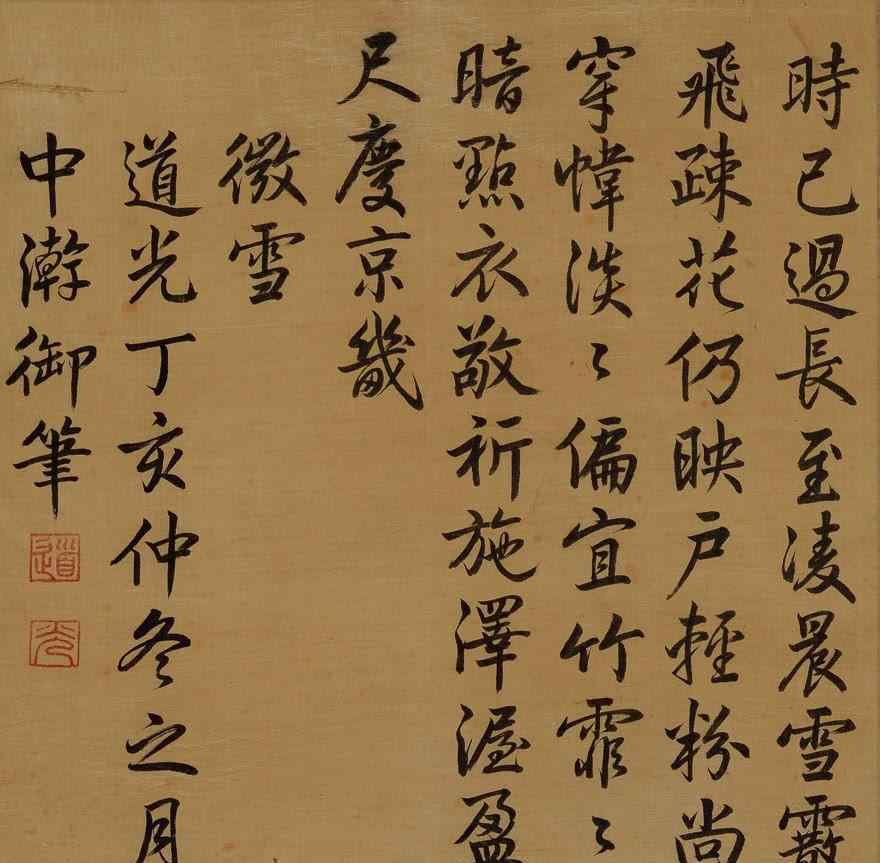 時已過長至凌晨雪霰
飛疎花仍映戶輕粉尚
穿幃淡〻偏宜竹霏〻
暗點衣敬祈施澤渥盈
尺慶京畿
微雪
道光丁亥仲冬之月
中澣御筆
道
光